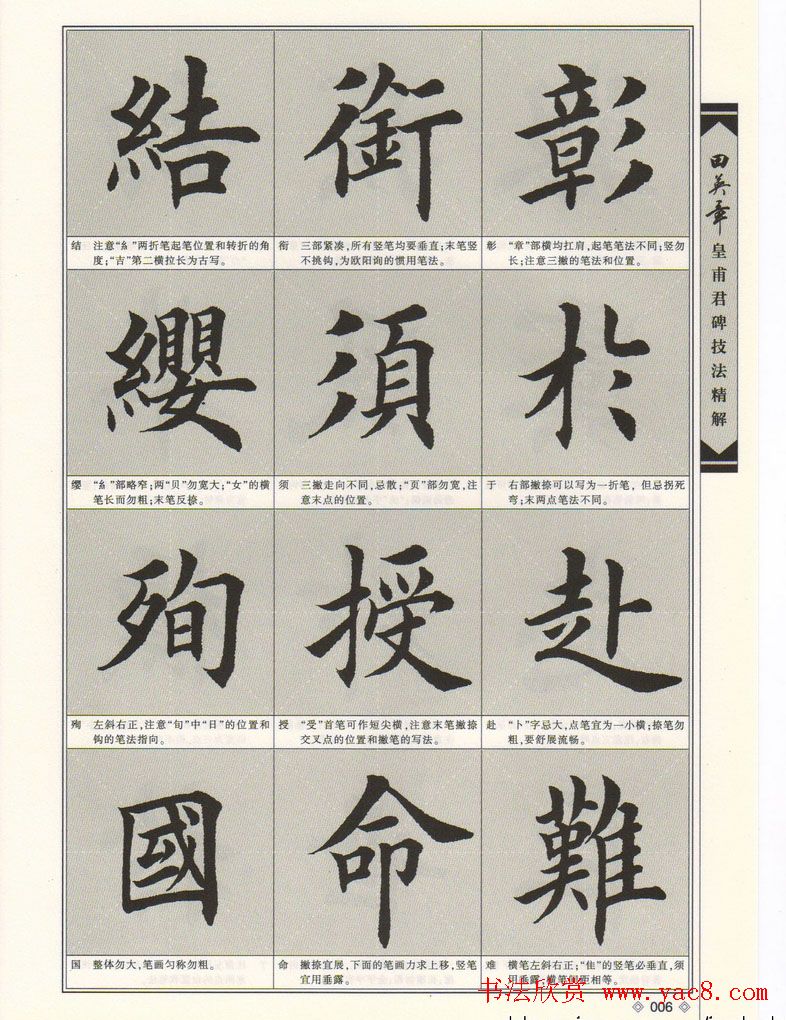 結
銜
彰
结 注意“糹”两折笔起笔位置和转折的角
度;“吉”第二横拉长为古写。
衔 三部紧凑,所有竖笔均要垂直;末笔竖
不挑钩,为欧阳询的惯用笔法。
彰 “章”部横均扛肩,起笔笔法不同;竖勿
长;注意三撇的笔法和位置。
纓
須
於
缨 “糹”部略窄;两“贝”勿宽大;“女”的横
笔长而勿粗;末笔反捺。
须 三撇走向不同,忌散;“页”部勿宽,注
意末点的位置。
于 右部撇捺可以写为一折笔,但忌拐死
弯;末两点笔法不同。
殉
授
赴
殉 左斜右正,注意“旬”中“日”的位置和
钩的笔法指向。
授 “受”首笔可作短尖横,注意末笔撇捺
交叉点的位置和撇笔的写法。
赴 “卜”字忌大,点笔宜为一小横;捺笔勿
粗,要舒展流畅。
國
命
難
国 整体勿大,笔画匀称勿粗。
命 撇捺宜展,下面的笔画力求上移,竖笔
宜用垂露。
难 横笔左斜右正;“隹”的竖笔必垂直,须
用垂露,横笔间距相等。
田英章
皇甫君碑技法精解
书法欣赏 www.yac8.com
006